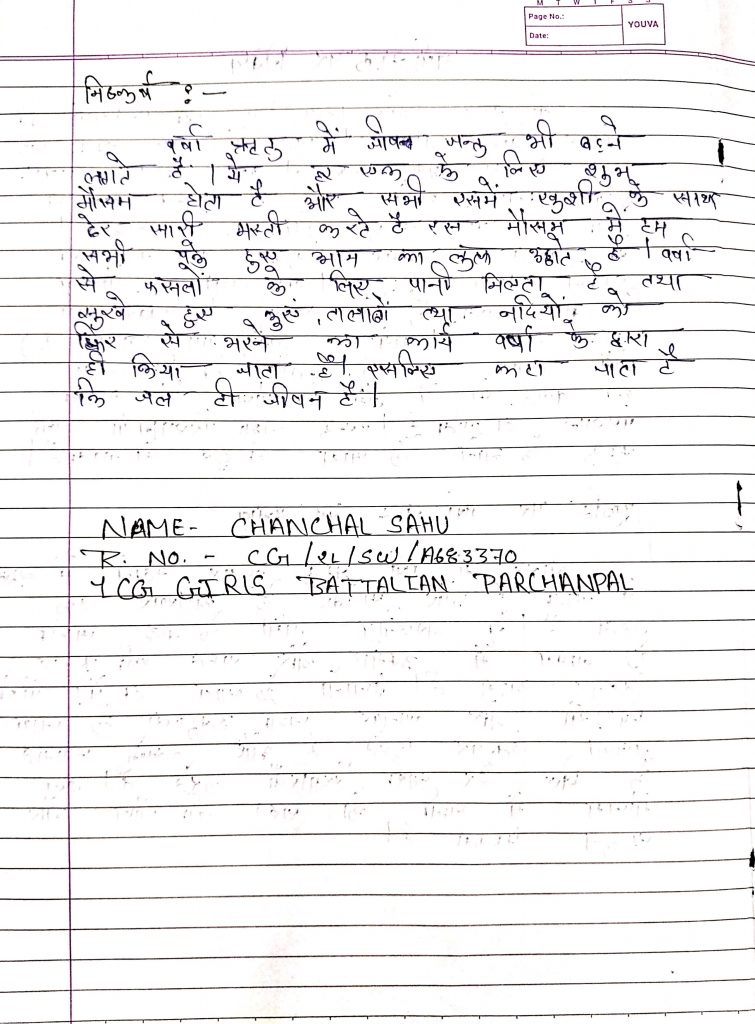 M T W T F S S
Page No.:
YOUVA
Date:
निष्कर्ष :-
वर्षा ऋतु में जीवन जन्तु भी बढ़ने
लगते हैं। ये हर एक के लिए शुभ
मौसम होता है और सभी इसमें खुशी के साथ
ढेर सारी मस्ती करते है इस मौसम में हम
सभी पके हुए आम का लुत्फ उठाते है। वर्षा
से फसलों के लिए पानी मिलता है तथा
सुखे हुए कुएं, तालाबों तथा नदियों को
फिर से भरने का कार्य वर्षा के द्वारा
ही किया जाता है। इसलिए कहा जाता है
कि जल ही जीवन है।
NAME- CHANCHAL SAHU
R. NO. - CG/21/SW/A683370
1 CG GIRLS BATTALIAN PARCHANPAL